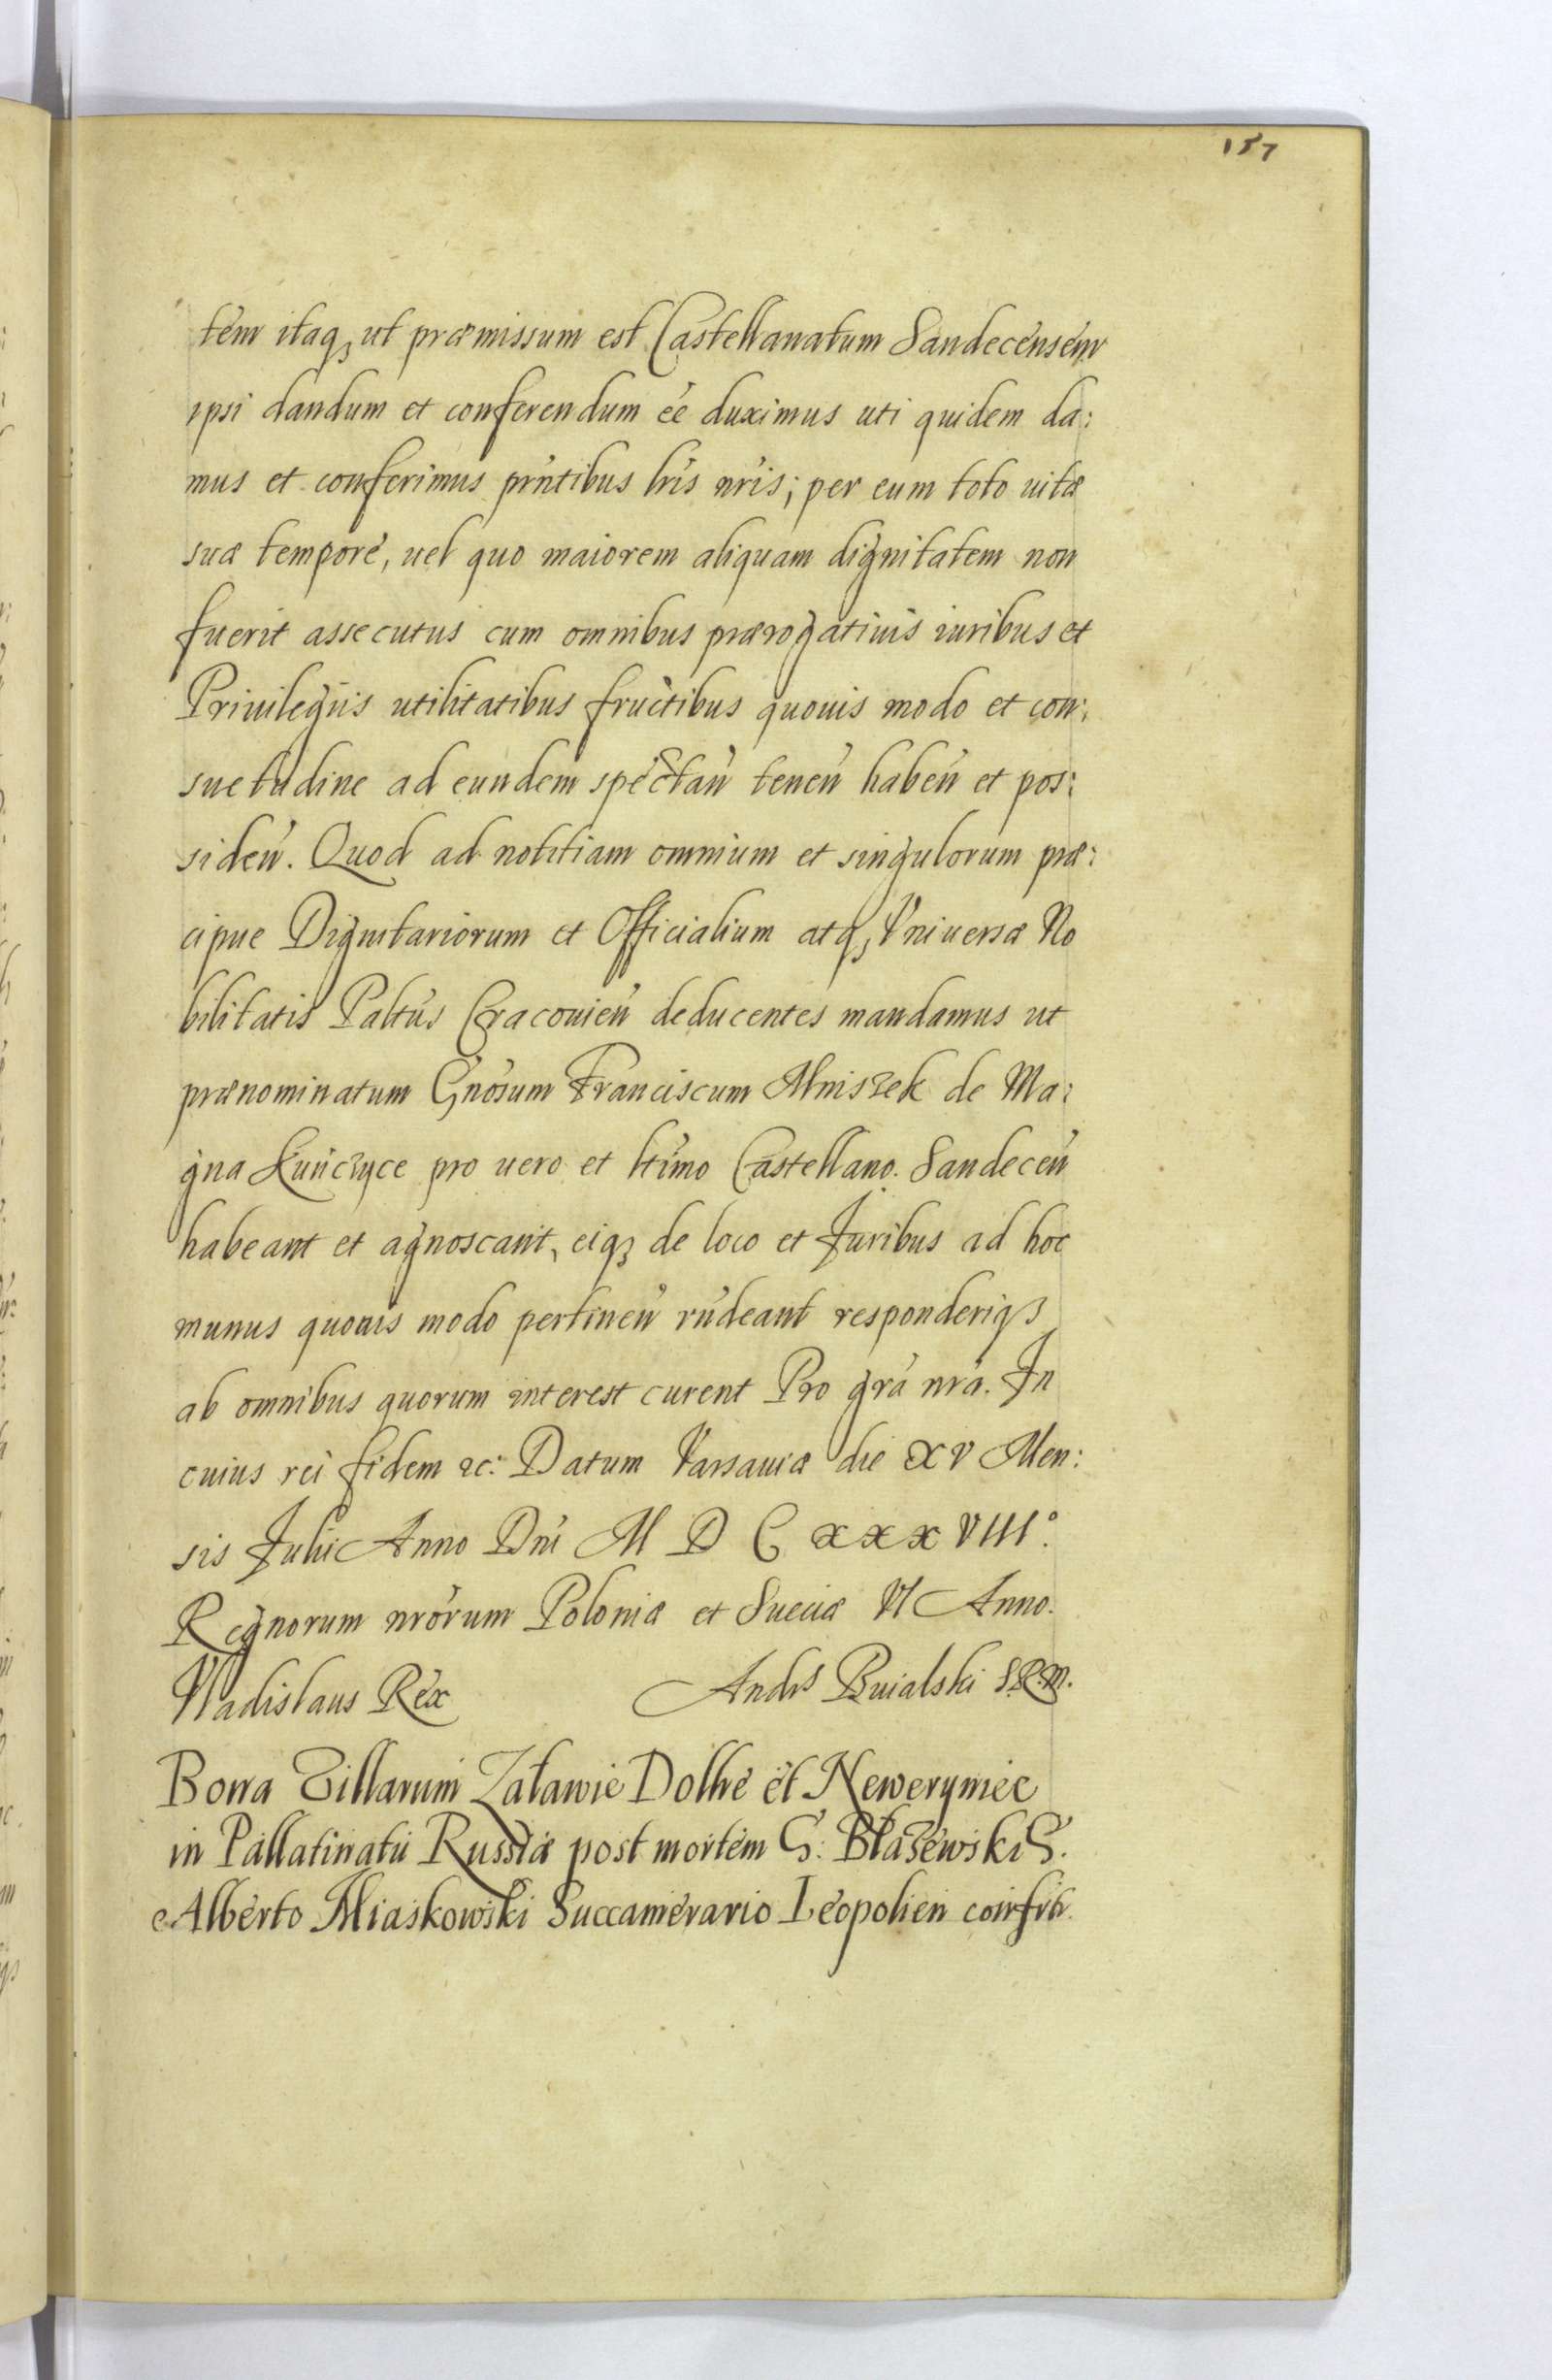 157
tem itaq₃ ut præmissum est Castellanatum Sandecensem
ipsi dandum et conferendum ee duximus uti quidem da:
mus et conferimus prntibus lris nris; per eum toto uitæ
suæ tempore, uel quo maiorem aliquam dignitatem non
fuerit assecutus cum omnibus prærogatiuis iuribus et
Priuilegijs utilitatibus fructibus quouis modo et con:
suetudine ad eundem spectan tenen haben et pos:
siden. Quod ad notitiam omnium et singulorum præ:
cipue Dignitariorum et Officialium atq₃ Vniuersæ No
bilitatis Paltus Cracouien deducentes mandamus ut
prænominatum Gnosum Franciscum Mniszek de Ma:
gna Kunczyce pro uero et ltimo Castellano. Sandecen
habeant et agnoscant, eiq₃ de loco et Juribus ad hoc
munus quouis modo pertinen rndeant responderiq₃
ab omnibus quorum interest curent Pro gra nra. In
cuius rei fidem &c: Datum Varsauiæ die XV Men:
sis Julii Anno Dni M D C XXXVIII°.
Regnorum nrorum Poloniæ et Sueciæ VI Anno.
Vladislaus Rex Andrs Buialski S.R.M.
Bona Villarum Zatawie Dolhe et Newerymice
in Pallatinatu Russiæ post mortem G: Błażewski G.
Alberto Miaskowski Succamerario Leopolien confrtr.